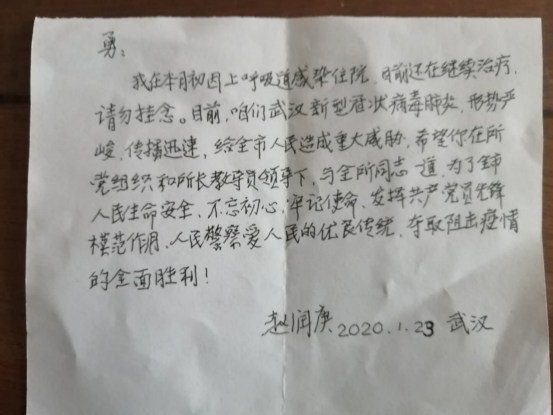 勇：
我在本月初因上呼吸道感染住院，目前还在继续治疗，
请勿挂念。目前，咱们武汉新型冠状病毒肺炎，形势严
峻，传播迅速，给全市人民造成重大威胁，希望你在所
党组织和所长教导员领导下，与全所同志一道，为了全市
人民生命安全，不忘初心，牢记使命，发挥共产党员先锋
模范作用，人民警察爱人民的优良传统，夺取阻击疫情
的全面胜利！
赵润庚 2020.1.23 武汉